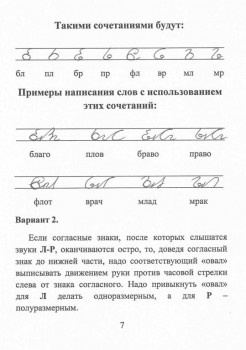 Такими сочетаниями будут:
бл пл бр пр фл вр мл мр
Примеры написания слов с использованием
этих сочетаний:
благо плов браво право
флот врач млад мрак
Вариант 2.
Если согласные знаки, после которых слышатся
звуки Л-Р, оканчиваются остро, то, доведя согласный
знак до нижней части, надо соответствующий «овал»
выписывать движением руки против часовой стрелки
слева от знака согласного. Надо привыкнуть «овал»
для Л делать одноразмерным, а для Р –
полуразмерным.
7